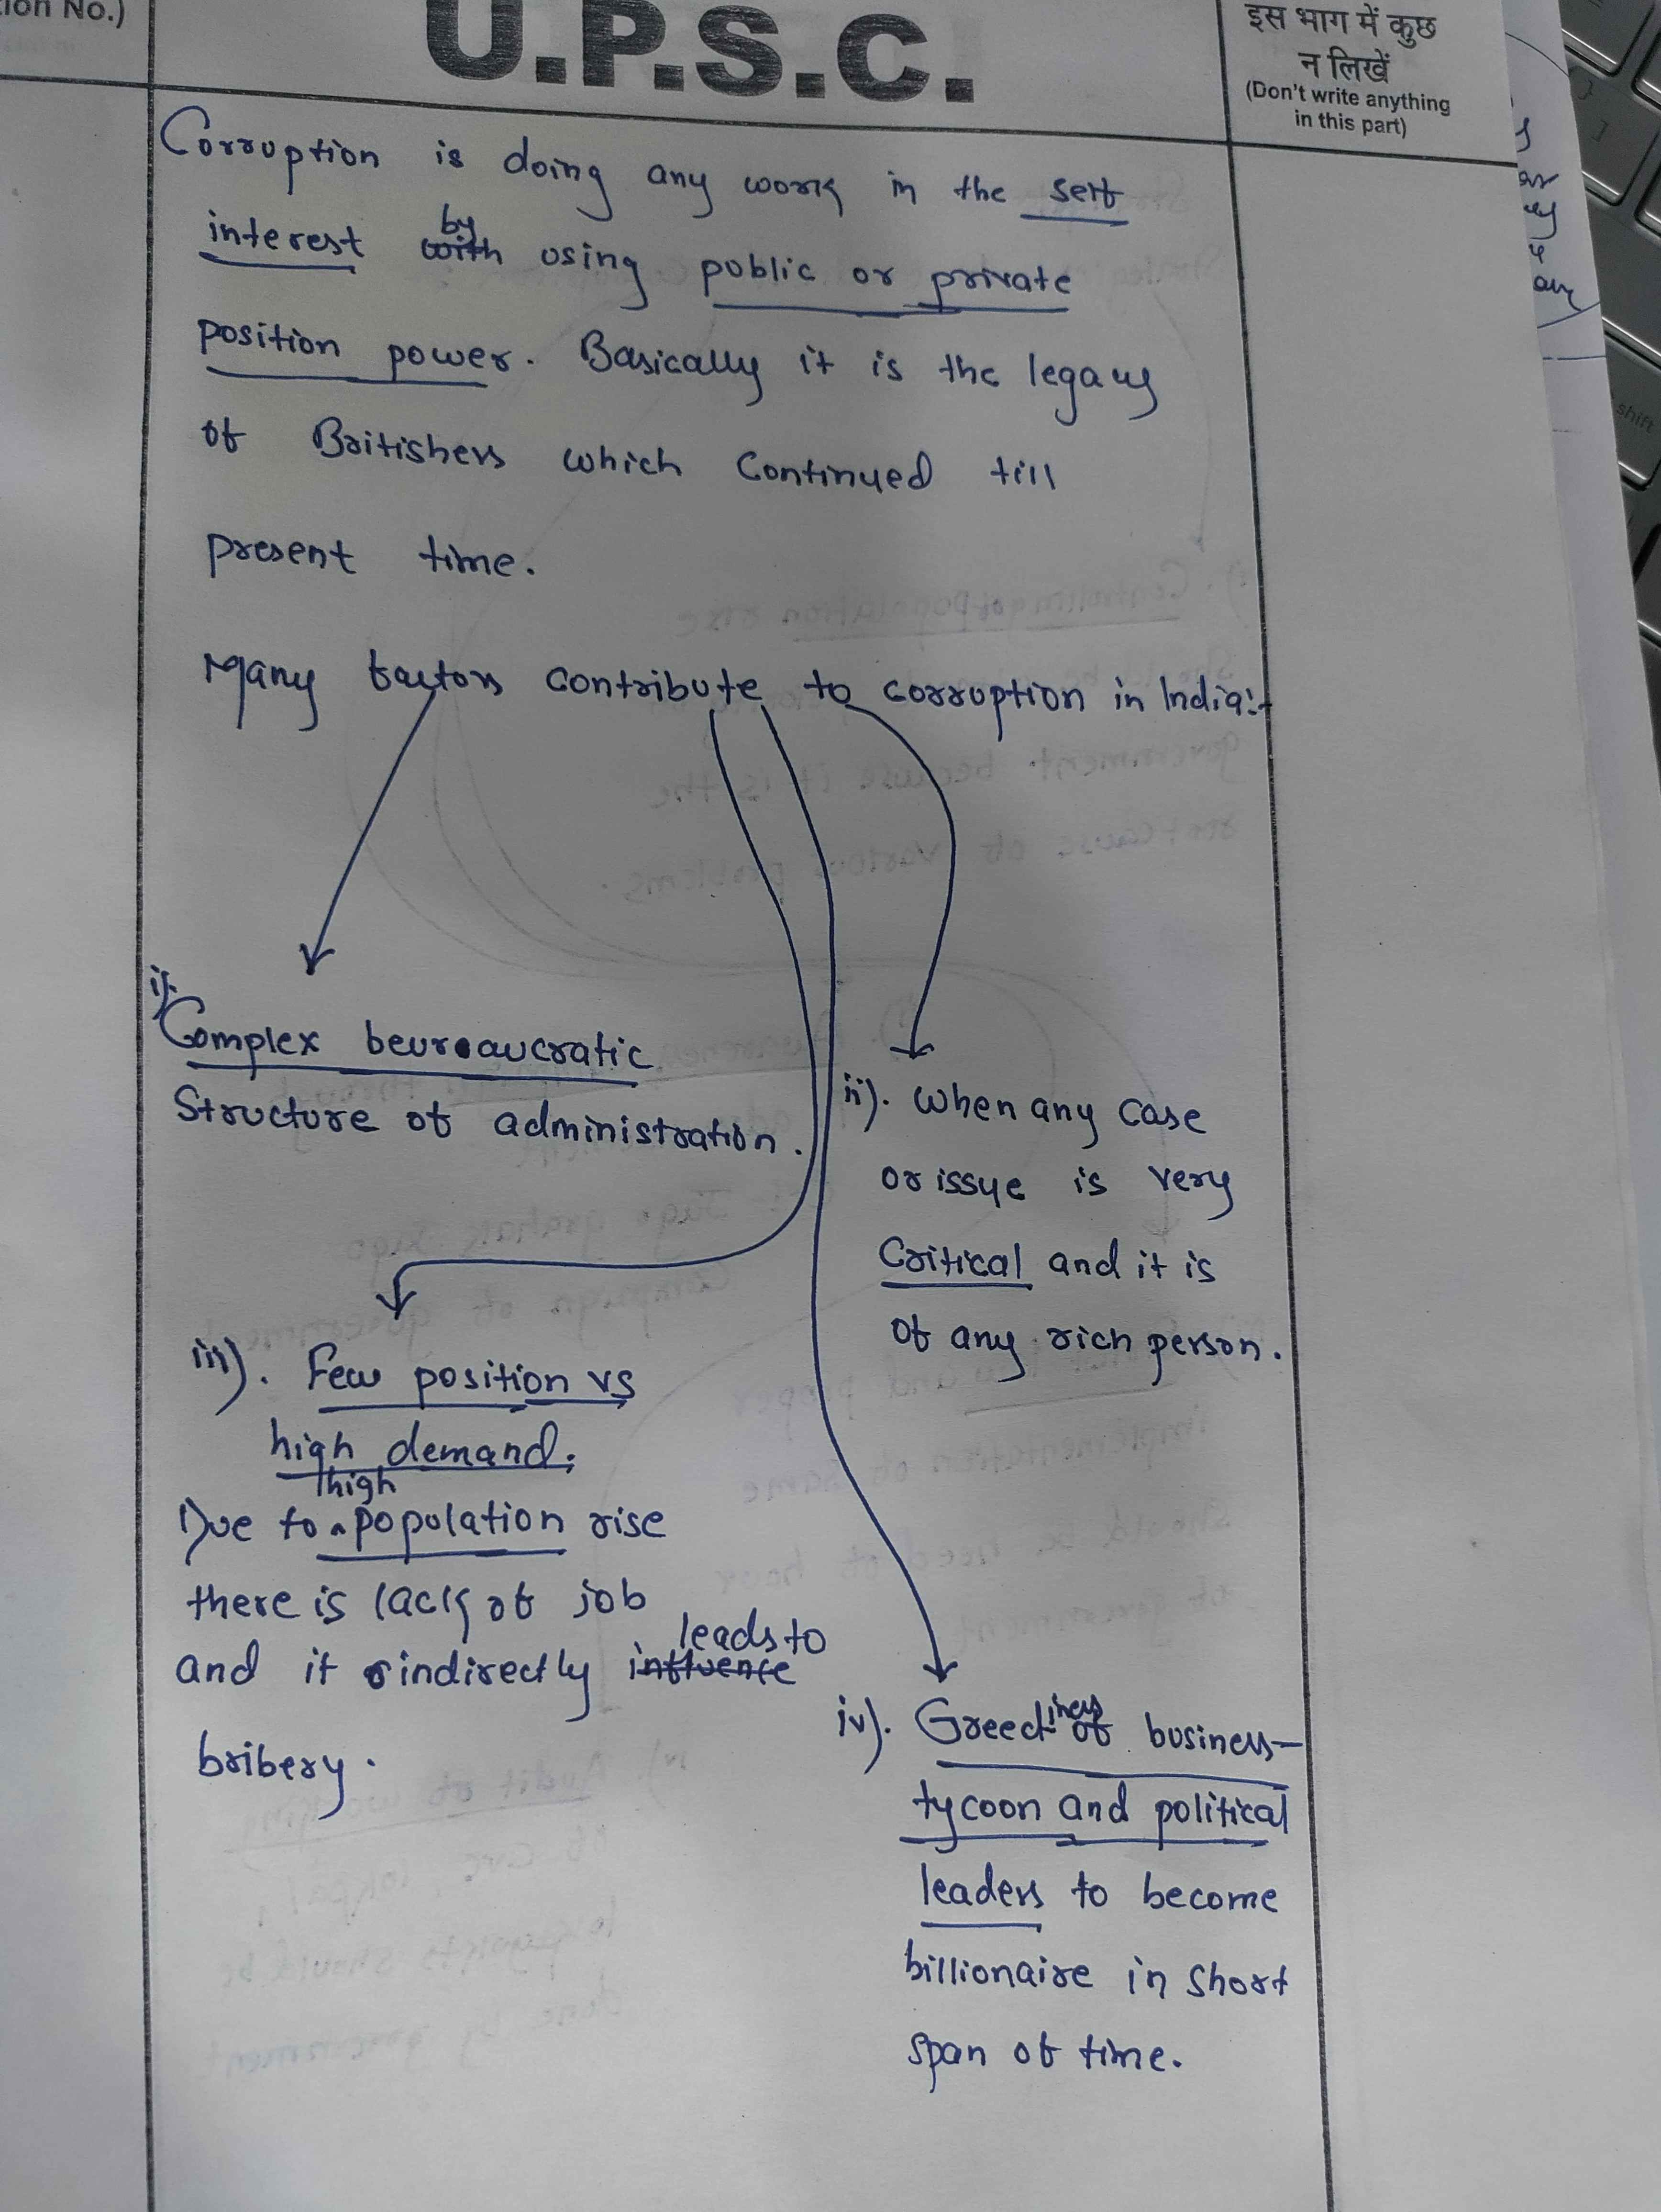 ion No.)
U.P.S.C.
इस भाग में कुछ
न लिखें
(Don't write anything
in this part)
Corruption is doing any work in the self
interest by with using public or private
position power. Basically it is the legacy
of Britishers which continued till
present time.
Many factors contribute to corruption in India:-
i).
Complex beureaucratic
Structure of administration.
ii). When any case
or issue is very
Critical and it is
of any rich person.
iii). Few position vs
high demand.
high
Due to ^ population rise
there is lack of job
leads to
and it indirectly influence
bribery.
iv). Greediness of business-
tycoon and political
leaders to become
billionaire in short
span of time.
shift